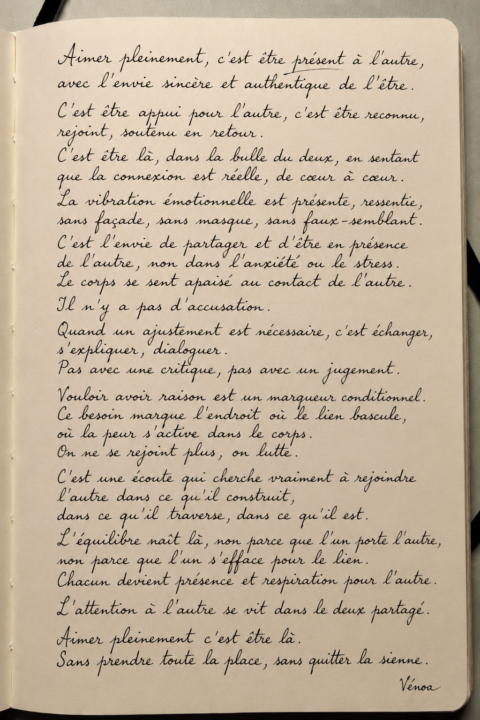 Aimer pleinement, c'est être présent à l'autre,
avec l'envie sincère et authentique de l'être.
C'est être appui pour l'autre, c'est être reconnu,
rejoint, soutenu en retour.
C'est être là, dans la bulle du deux, en sentant
que la connexion est réelle, de cœur à cœur.
La vibration émotionnelle est présente, ressentie,
sans façade, sans masque, sans faux-semblant.
C'est l'envie de partager et d'être en présence
de l'autre, non dans l'anxiété ou le stress.
Le corps se sent apaisé au contact de l'autre.
Il n'y a pas d'accusation.
Quand un ajustement est nécessaire, c'est échanger,
s'expliquer, dialoguer.
Pas avec une critique, pas avec un jugement.
Vouloir avoir raison est un marqueur conditionnel.
Ce besoin marque l'endroit où le lien bascule,
où la peur s'active dans le corps.
On ne se rejoint plus, on lutte.
C'est une écoute qui cherche vraiment à rejoindre
l'autre dans ce qu'il construit,
dans ce qu'il traverse, dans ce qu'il est.
L'équilibre naît là, non parce que l'un porte l'autre,
non parce que l'un s'efface pour le lien.
Chacun devient présence et respiration pour l'autre.
L'attention à l'autre se vit dans le deux partagé.
Aimer pleinement c'est être là.
Sans prendre toute la place, sans quitter la sienne.
Vénoa